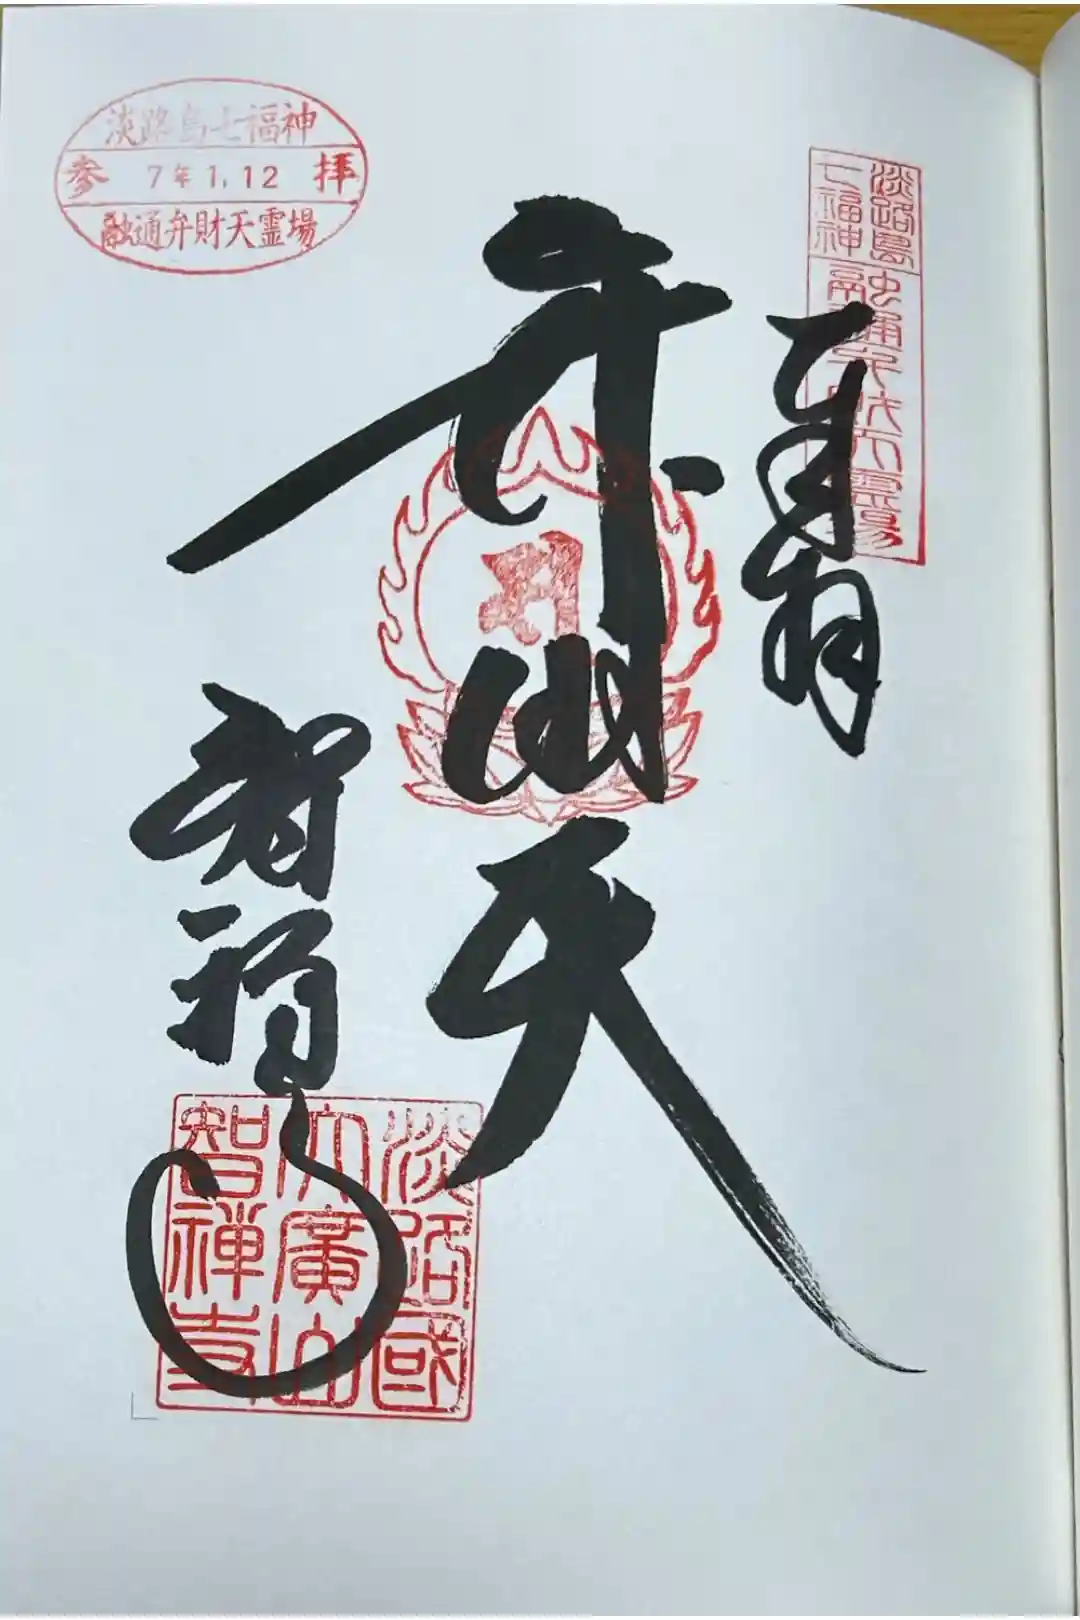 淡路島七福神
参 7年1.12 拝
融通弁財天霊場
淡路島
七福神
融通弁財天霊場
奉拝
弁財天
智禅寺
淡路國
大廣山
智禅寺